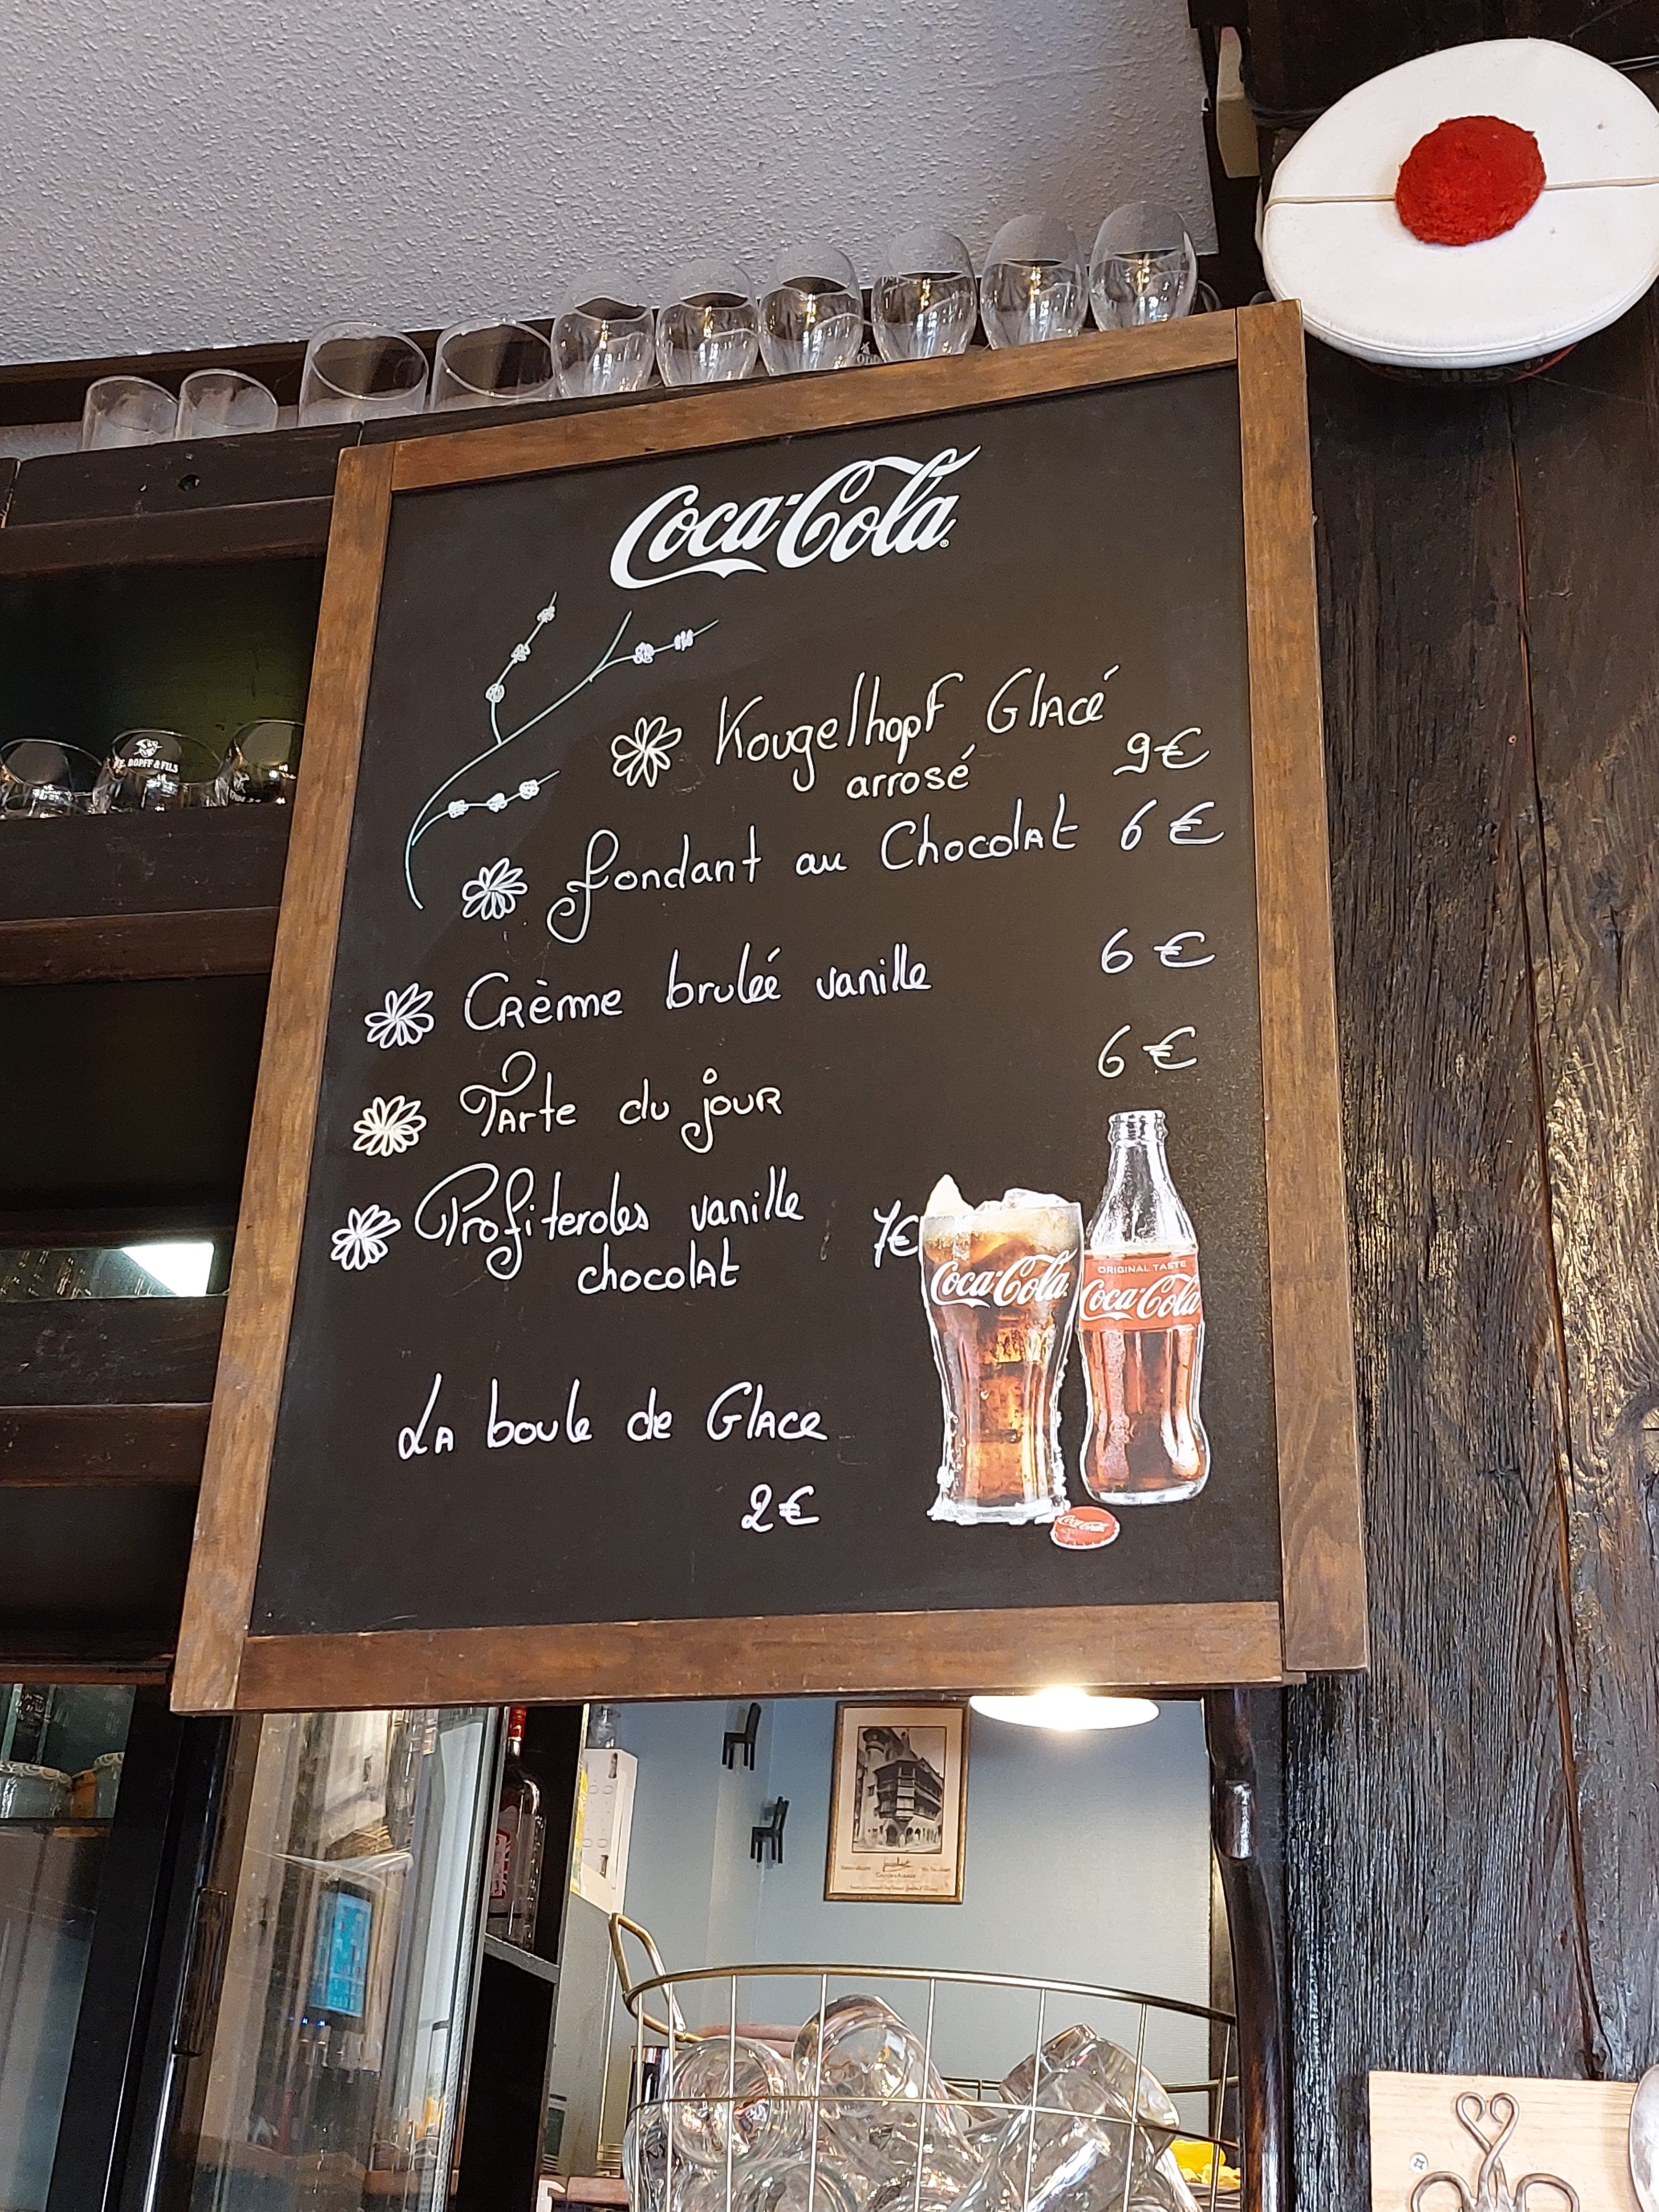 Coca-Cola
Kougelhopf Glacé
arrosé 9€
fondant au Chocolat 6€
Crème bruléé vanille 6€
Tarte du jour 6€
Profiteroles vanille 7€
chocolat
La boule de Glace
2€
Coca-Cola
ORIGINAL TASTE
Coca-Cola
Coca-Cola
DOPFF & FILS